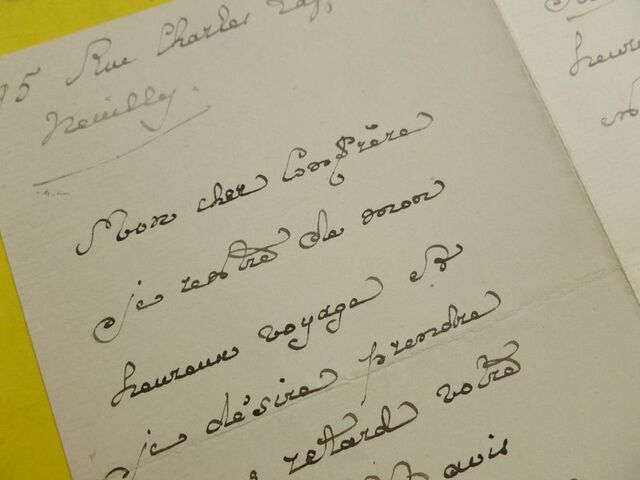 Rue Charles Laf,
Neuilly.
Mon cher Confrère
je rentre de mon
heureux voyage et
je désire prendre
retard votre
avis
heure